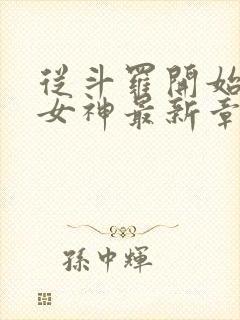 從斗羅開始
女神最新章
孫中輝